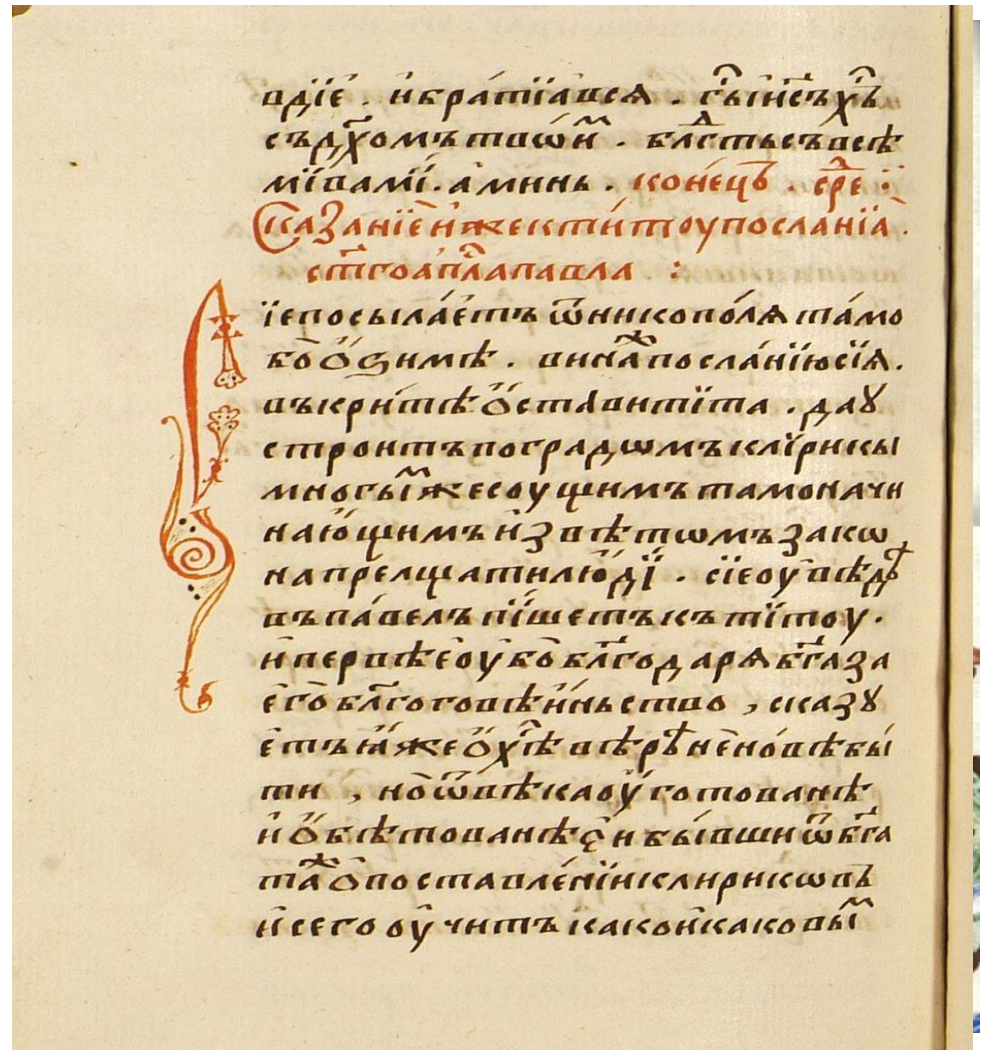 вдїе . и҆ братїа всѧ . г҇ь і҆и҇съ х҇ъ
съ д҇хомъ твои҆м . бл҇гть съ всѣ
мївамї . аминь . конецъ . сре҇ :
Сказанїе и҆же к титоу посланїа .
ст҇го ап҇ла павла :
Сїе посылае҆тъ ѿ никополѧ тамо
бо ѻ҆ꙁимѣ . вина ж посланїю сїѧ .
въ критѣ ѻ҆стави тїта . да ꙋ
строитъ по градѡмъ клїрикы
многыї же соущимъ тамо начи
наю҆щимъ и҆звѣтѡмъ зако
на прелщати люд҆ї . сїе оувѣд
въ павелъ пїшетъ къ тїтоу .
и҆ первѣе оубо бл҇годарѧ б҇га за
е҆го бл҇гоговѣи҆ньство , сказꙋ
е҆тъ ꙗ҆же ѻ҆ х҇ѣ вѣрꙋ не новѣ бы
ти , но ѿ вѣка оуготованѣ
и҆ ѻ҆бѣтованѣ е҆и бывши ѿ б҇га
таж ѻ҆ поставленїи клирикѡвъ
и҆ сего оучитъ како и҆ каковым